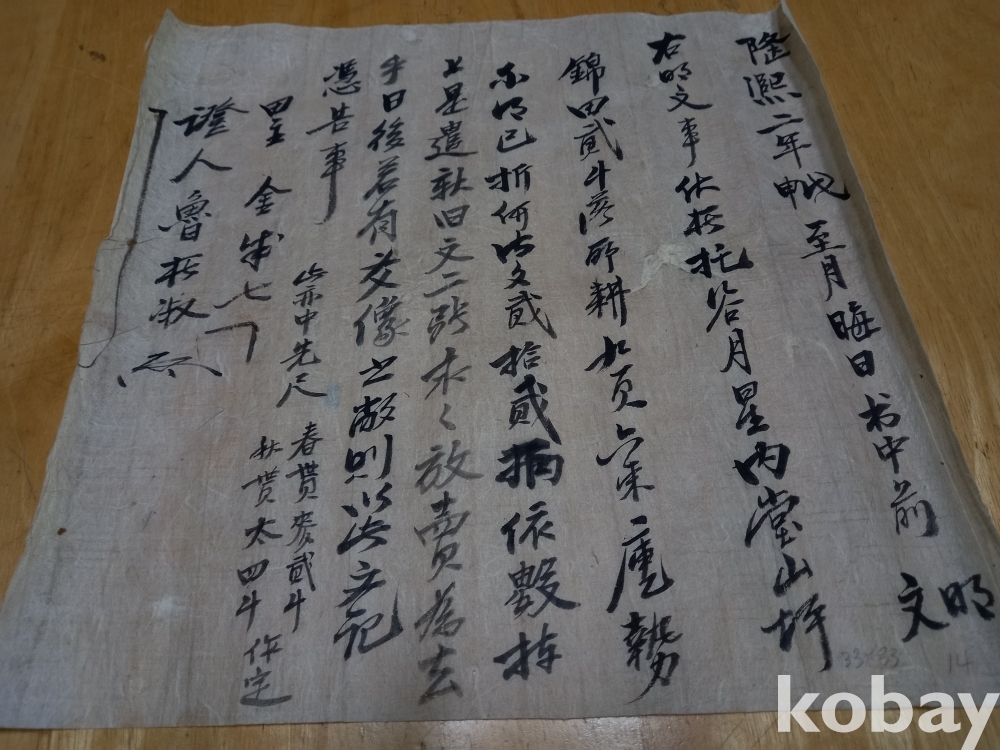 隆熙二年戊申至月晦日书中前 明文
右明文事伏在托谷月星内堂山坪
錦田貳斗落所耕九頁六束庫勢
不得已折価文貳拾貳兩依數捧
上是遣新旧文二張永々放賣為去
乎日後若有爻像之敝則以此文記
憑告事
此亦中先尺
春貰麥貳斗
秋貰太四斗作定
田主 金 七
證人 魯 淑
33×33
14
kobay